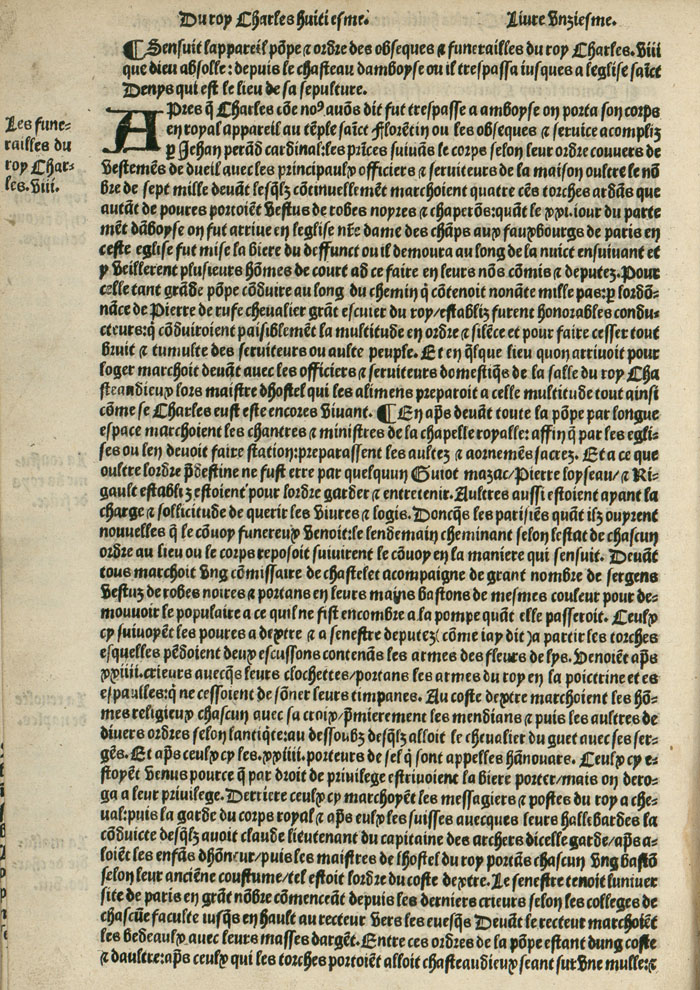 Du roy Charles huitiesme. Liure Vnziesme.
¶ Sensuit lappareil põpe ⁊ ordre des obseques ⁊ funerailles du roy Charles. Viii
que dieu absolle: depuis le chasteau damboyse ou il trespassa iusques a leglise saĩct
Denys qui est le lieu de sa sepulture.
Les fune-
railles du
roy Char-
les. Viii.
APres q̃ Charles cõe noꝰ auõs dit fut trespasse a amboyse on porta son corps
en royal appareil au tẽple saĩct Florẽtin ou les obseques ⁊ seruice acomplis
p̱ Jehan perãd cardinal: les prĩces suiuãs le corps selon leur ordre couuers de
Vestemẽs de dueil auec les principaulx officiers ⁊ seruiteurs de la maison oultre le nõ
bre de sept mille deuãt lesq̃lz cõtinuellemẽt marchoient quatre cẽs torches ardãs que
autãt de poures portoiẽt Vestus de robes noyres ⁊ chaperõs: quãt le xxi. iour du parte
mẽt dãboyse on fut arriue en leglise nr̃e dame des chãps aux fauxbourgs de paris en
ceste eglise fut mise la biere du deffunct ou il demoura au long de la nuict ensuiuant et
y Veillerent plusieurs hõmes de court ad ce faire en leurs nõs cõmis ⁊ deputez. Pour
celle tant grãde põpe cõduire au long du chemin q̃ cõtenoit nonãte mille pas: p̱ lordõ-
nãce de Pierre de rufe cheualier grãt escuier du roy/establis furent honorables condu-
cteurs: q̃ cõduiroient paisiblemẽt la multitude en ordre ⁊ silẽce et pour faire cesser tout
bruit ⁊ tumulte des seruiteurs ou aulte peuple. Et en q̃lque lieu quon arriuoit pour
loger marchoit deuãt auec les officiers ⁊ seruiteurs domestiq̃s de la salle du roy Cha
steandieux lors maistre dhostel qui les alimens preparoit a celle multitude tout ainsi
cõme se Charles eust este encores Viuant. ¶ En ap̃s deuãt toute la põpe par longue
espace marchoient les chantres ⁊ ministres de la chapelle royalle: affin q̃ par les egli-
ses ou len deuoit faire station: preparassent les aultez ⁊ aornemẽs sacrez. Et a ce que
oultre lordre p̃destine ne fust erre par quelquun Guiot mazac/Pierre loyseau/⁊ Ri-
gault establiz estoient pour lordre garder ⁊ entretenir. Aultres aussi estoient ayant la
charge ⁊ sollicitude de querir les Viures ⁊ logis. Doncq̃s les parisiẽs quãt ilz ouyrent
nouuelles q̃ le cõuoy funereux Venoit: le lendemain cheminant selon lestat de chascun
ordre au lieu ou le corps reposoit suiuirent le cõuoy en la maniere qui sensuit. Deuãt
tous marchoit Vng cõmissaire de chastelet acompaigne de grant nombre de sergens
Vestuz de robes noires ⁊ portans en leurs mains bastons de mesmes couleur pour de-
mouuoir le populaire a ce quil ne fist encombre a la pompe quãt elle passeroit. Ceulx
cy suiuoyẽt les poures a dextre ⁊ a senestre deputez (cõme iay dit) a partir les torches
esquelles pẽdoient deux escussons contenãs les armes des fleurs de lys. Venoiẽt ap̃s
xxiiii. crieurs auecq̃s leurs clochettes/portans les armes du roy en la poictrine et es
espaulles: q̃ ne cessoient de sõner leurs timpanes. Au coste dextre marchoient les hõ-
mes religieux chascun auec sa croix/p̃mierement les mendians ⁊ puis les aultres de
diuers ordres selon lantiq̃te: au dessoubz desq̃lz alloit le cheualier du guet auec ses ser-
gẽs. Et ap̃s ceulx cy les. xxiiii. porteurs de sel q̃ sont appelles hãnouars. Ceulx cy e-
stoyẽt Venus pource q̃ par droit de priuilege estriuoient la biere porter/mais on dero-
ga a leur priuilege. Derriere ceulx cy marchoyẽt les messagiers ⁊ postes du roy a che-
ual: puis la garde du corps royal ⁊ ap̃s eulx les suisses auecques leurs hallebardes la
cõduicte desq̃lz auoit claude lieutenant du capitaine des archers dicelle garde/ap̃s a-
loiẽt les enfãs dhõneur/puis les maistres de lhostel du roy portãs chascun Vng bastõ
selon leur anciẽne coustume/tel estoit lordre du coste dextre. Le senestre tenoit luniuer
site de paris en grãt nõbre cõmencãt depuis les derniers crieurs selon les colleges de
chascũe faculte iusq̃s en hault au recteur Vers les euesq̃s Deuãt le recteur marchoiẽt
les bedeaulx auec leurs masses dargẽt. Entre ces ordres de la põpe estant dung coste
⁊ daultre: ap̃s ceulx qui les torches portoiẽt alloit chasteaudieux seant sur Vne mulle: ⁊